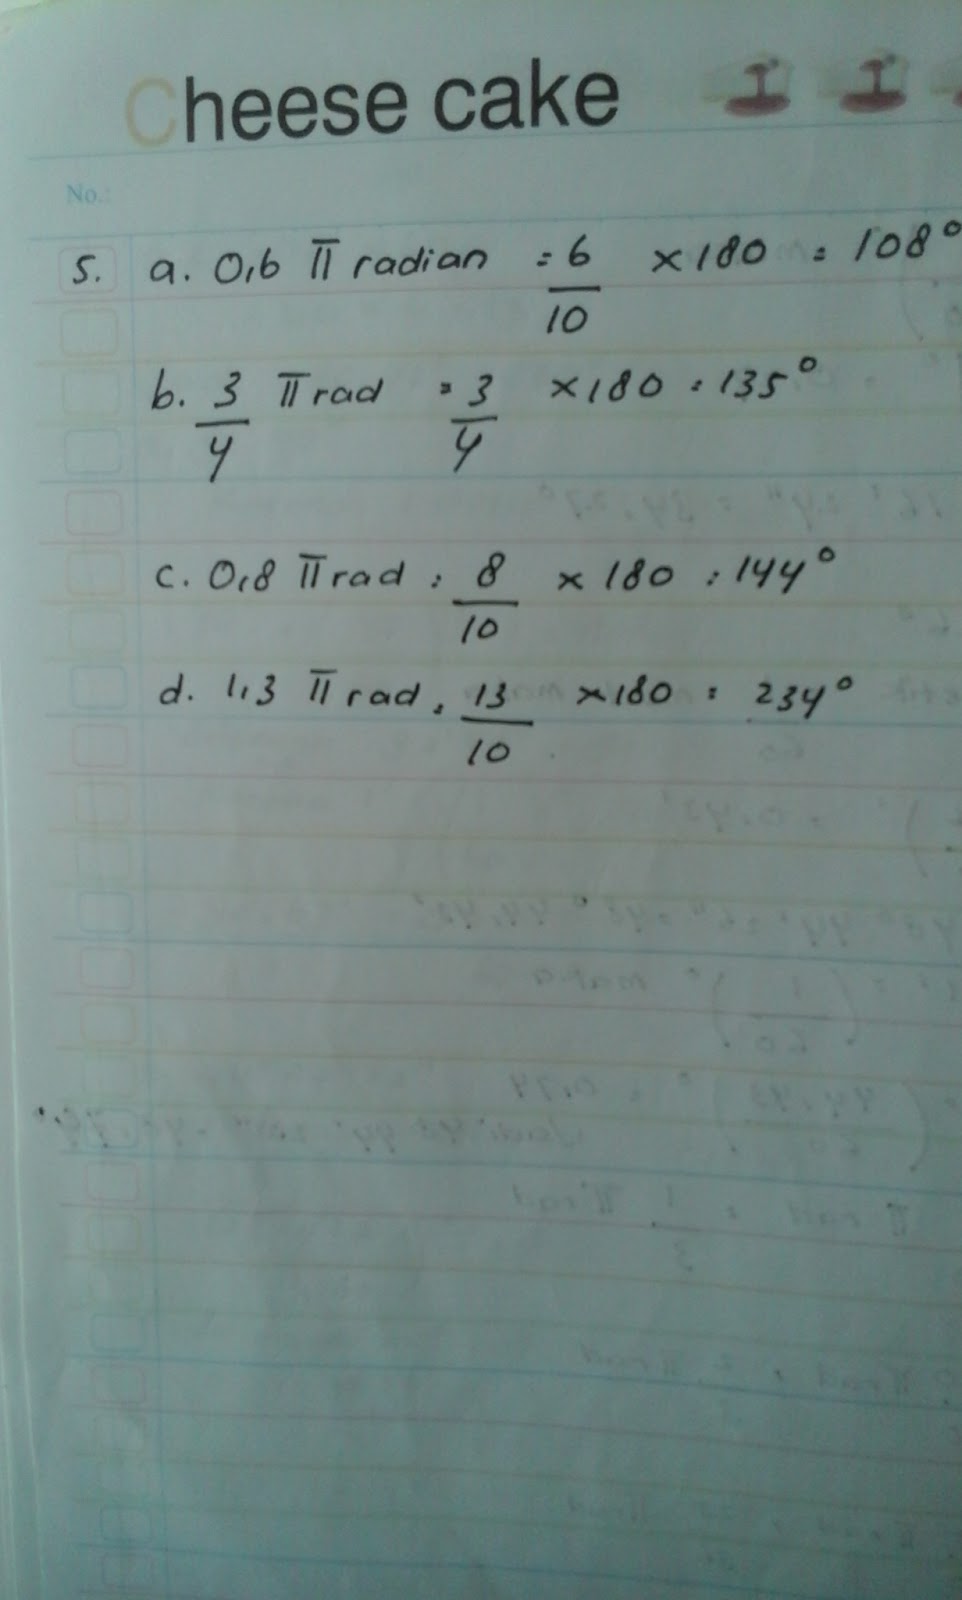 Cheese cake
No.:
5. a. 0,6 π radian = 6/10 × 180 = 108°
b. 3/4 π rad = 3/4 × 180 = 135°
c. 0,8 π rad = 8/10 × 180 = 144°
d. 1,3 π rad = 13/10 × 180 = 234°